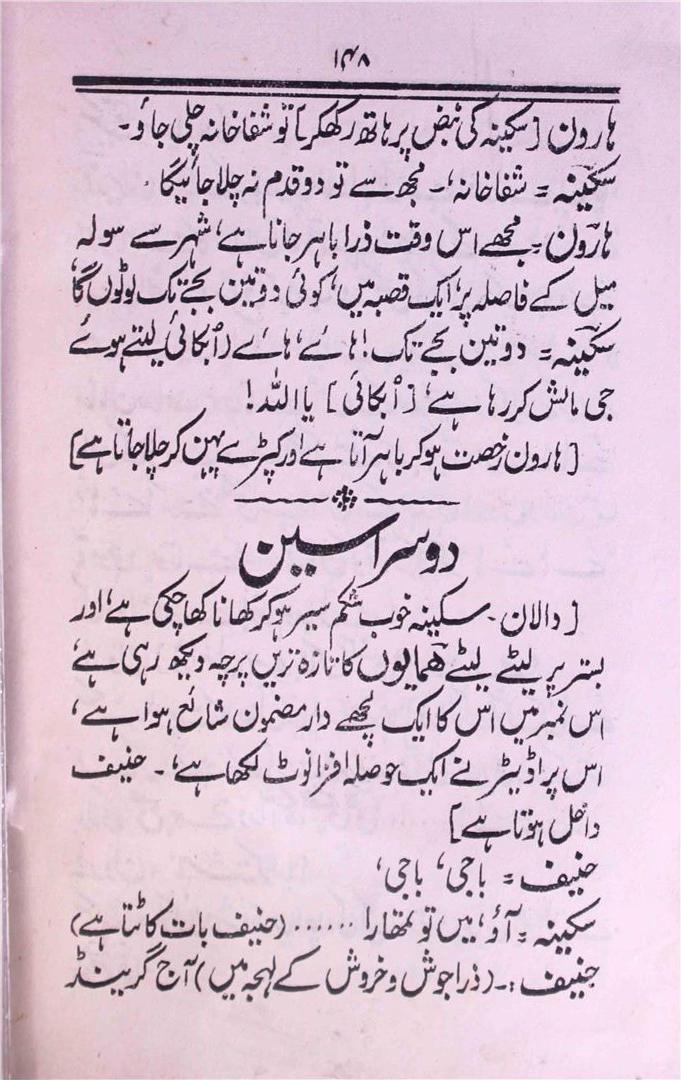 ۱۴۸
ہارون [سکینہ کی نبض پر ہاتھ رکھکر] تو شفاخانہ چلی جاؤ۔
سکینہ = شفاخانہ،۔ مجھ سے تو دو قدم نہ چلا جائیگا۔
ہارون۔ مجھے اس وقت ذرا باہر جانا ہے، شہر سے سولہ
میل کے فاصلہ پر، ایک قصبہ میں، کوئی دو تین بجے تک لوٹوں گا،
سکینہ = دو تین بجے تک! ہائے، ہائے (اُبکائی لیتے ہوئے
جی مالش کر رہا ہے، [اُبکائی] یا اللہ!
[ہارون رخصت ہو کر باہر آتا ہے اور کپڑے پہن کر چلا جاتا ہے]
دوسرا سین
[دالان۔ سکینہ خوب شکم سیر ہو کر کھانا کھا چکی ہے، اور
بستر پر لیٹے لیٹے ھمایوں کا تازہ تریں پرچہ دیکھ رہی ہے،
اس نمبر میں اس کا ایک لچھے دار مضمون شائع ہوا ہے،
اس پر اڈیٹر نے ایک حوصلہ افزا نوٹ لکھا ہے،۔ حنیف
داخل ہوتا ہے]
حنیف = باجی، باجی،
سکینہ = آؤ، میں تو تمھارا ...... (حنیف بات کاٹتا ہے)
حنیف :۔ (ذرا جوش و خروش کے لہجہ میں) آج گرینڈ